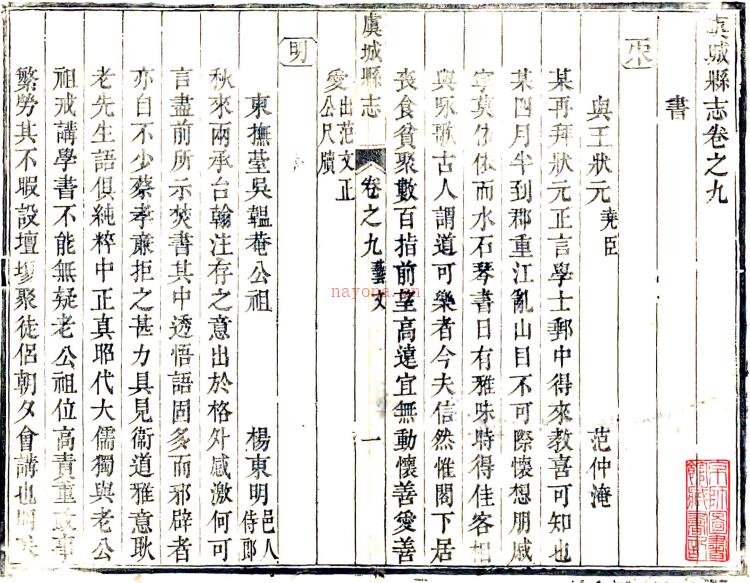 虞城縣志卷之九
書
宋
與王狀元堯臣 范仲淹
某再拜狀元正言學士郵中得來教喜可知也
某四月半到郡重江亂山目不可際懷想朋戚
寧莫依依而水石琴書日有雅味時得佳客相
與咏歌古人謂道可樂者今夫信然惟閣下居
喪食貧聚數百指前望高遠宜無動懷善愛善
愛出范文正公尺牘
虞城縣志 卷之九 藝文 一
明
東撫臺吳韞菴公祖 楊東明邑人侍郎
秋來兩承台翰注存之意出於格外感激何可
言盡前所示焚書其中透悟語固多而邪辟者
亦自不少蔡孝廉拒之甚力具見衞道雅意耿
老先生語俱純粹中正真昭代大儒獨與老公
祖戒講學書不能無疑老公祖位高責重政事
繁勞其不暇設壇墠聚徒侶朝夕會講也明矣
nayona.cn
宗師圖書館藏書印